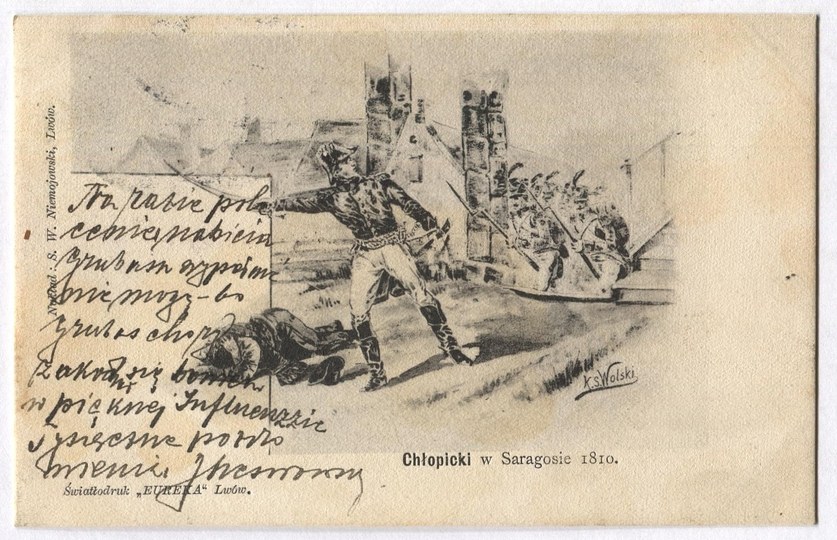 Nakład: S. W. Niemojowski, Lwów.
Na razie pole
cenie nabicia
Grubasa wypełnić
nie mogę - bo
Grubas chory
zakochał się bowiem
w pięknej Influenzzie
Tysiączne pozdro
wienia
K. S. Wolski
Chłopicki w Saragosie 1810.
Światłodruk „EUREKA“ Lwów.